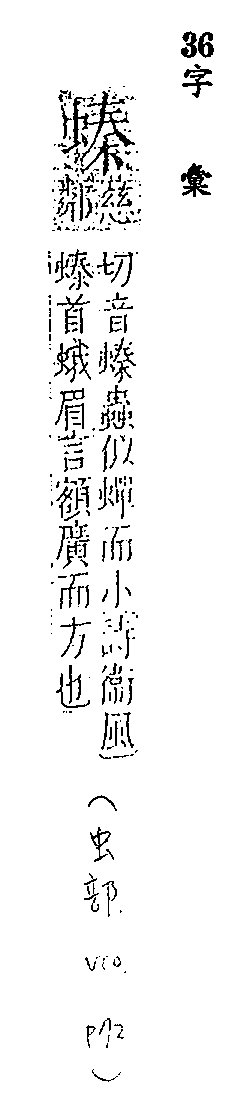 36字彙
螓
慈鄰
切音螓蟲似蟬而小詩衛風
螓首蛾眉言額廣而方也
(虫部.